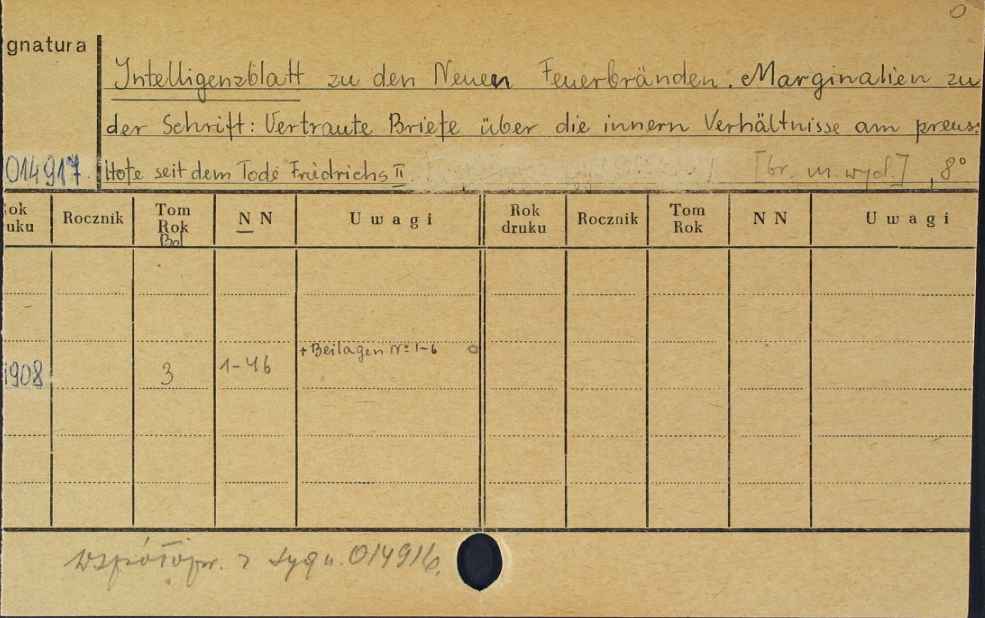 0
gnatura
Intelligenzblatt zu den Neuen Feuerbränden. Marginalien zu
der Schrift: Vertraute Briefe über die innern Verhältnisse am preus.
014917 Hofe seit dem Tode Friedrichs II. [br. m. wyd.], 8°
ok uku Rocznik Tom Rok Bd NN Uwagi Rok druku Rocznik Tom Rok NN Uwagi
+ Beilagen Nr 1-6
1908 3 1-46
współopr. z sygn. 014916.